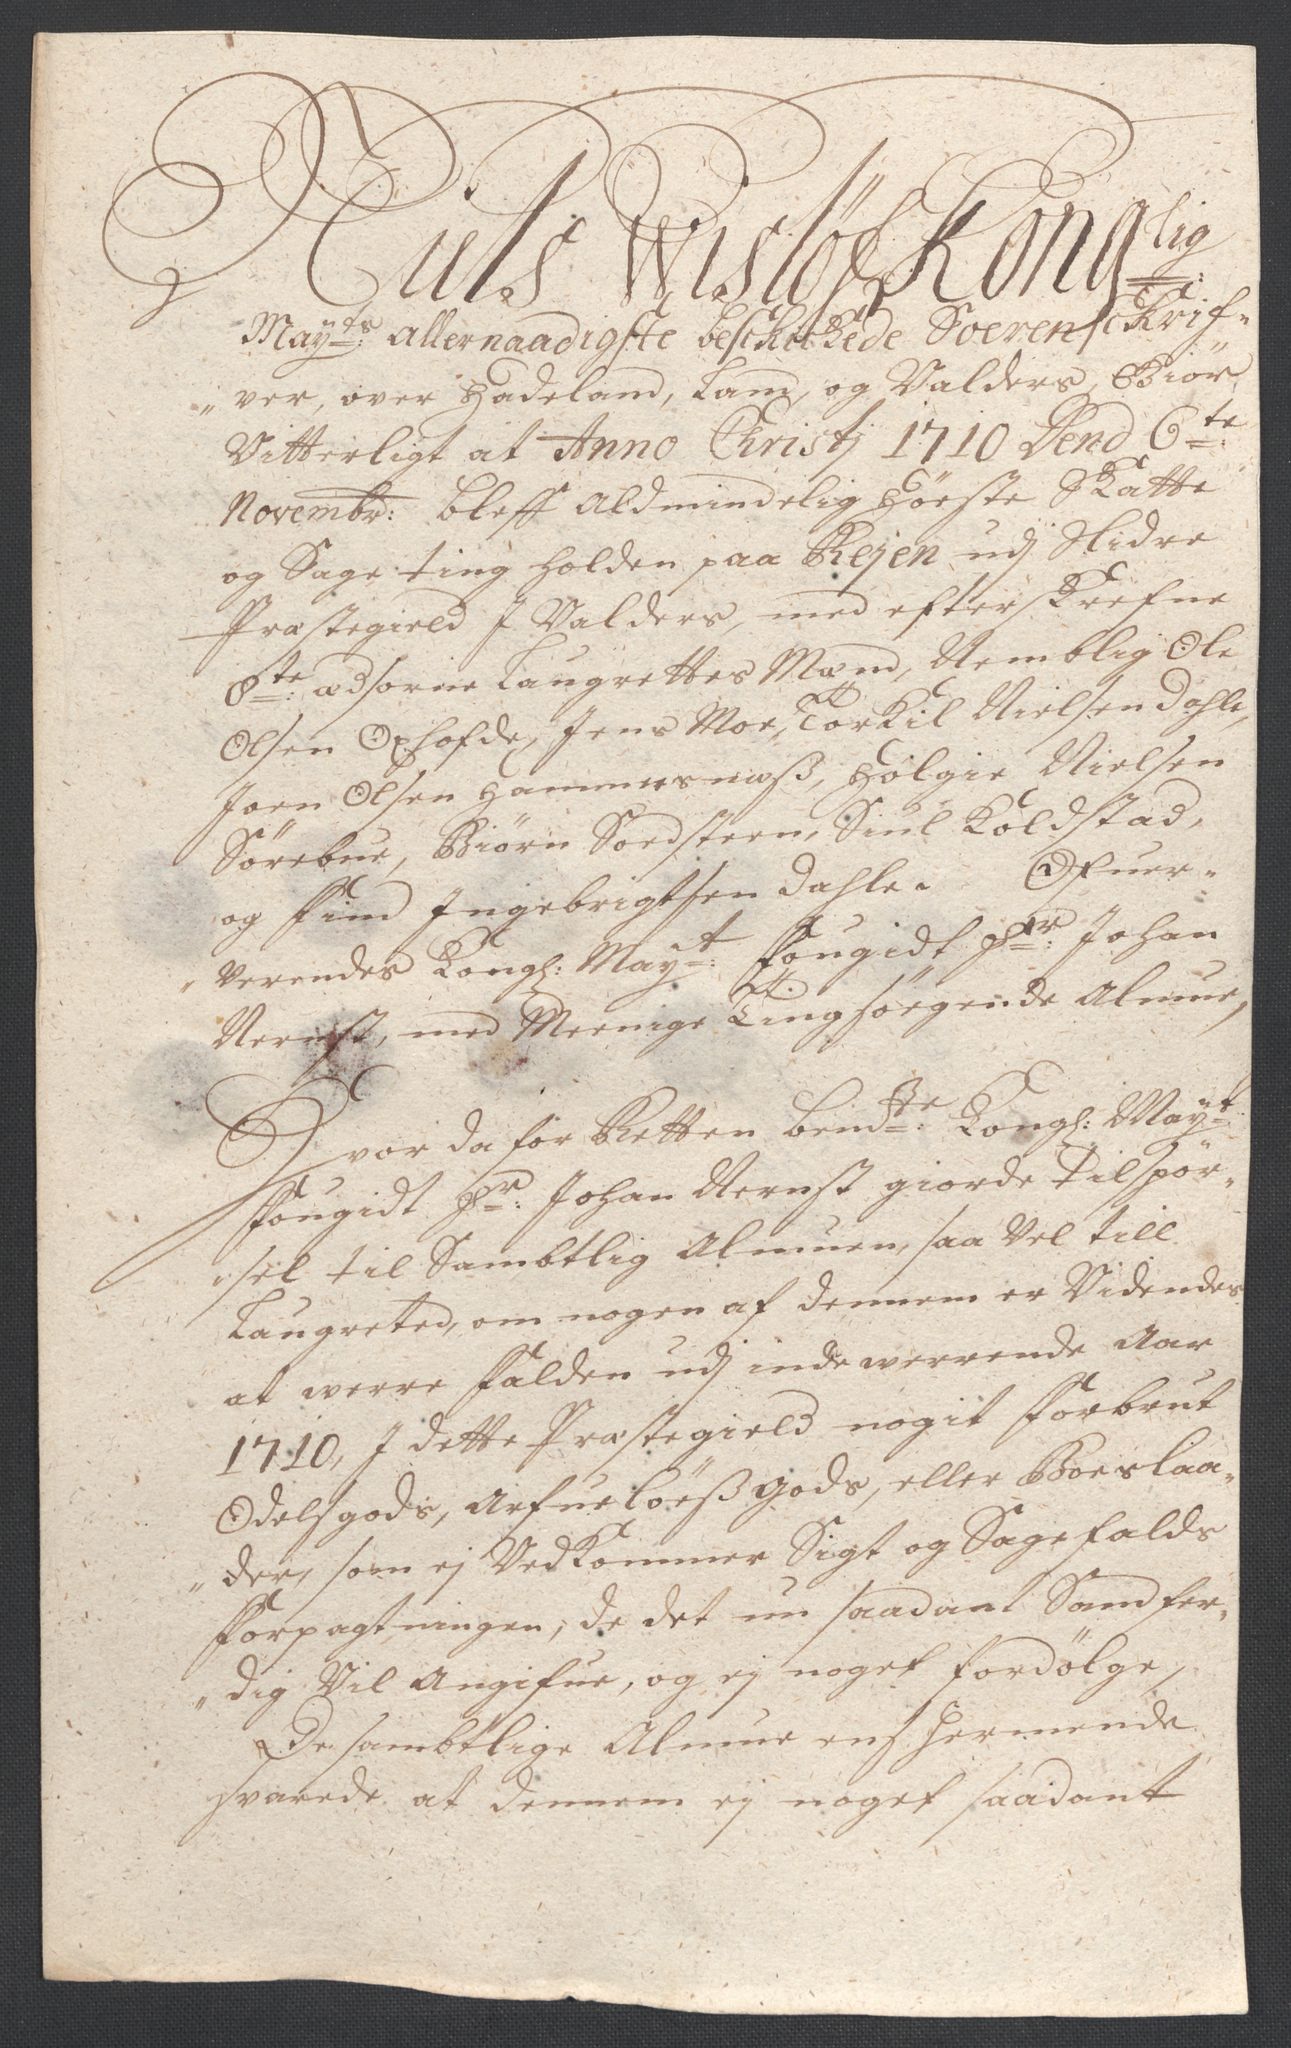 Niels Wislöf Konglig:
Mayts: allernaadigste beskickede Soerenschrif„
„ver, over Hadeland, Land, og Valders, Giör
Vitterligt at Anno Christj 1710 Dend 6te
Novembr: bleff Aldmindelig Höeste Skatte
og Sage ting holden paa Reien udj Slidre
Præstegield J Valders, med efterskrefne
8te: ædsorne Laugrettes Mænd, Nemblig Ole
Olsen Oxhofde, Jens Moe, Torkil Nielsen Dahle,
Joen Olsen Hammersnæß, Helgie Nielsen
Sörebue, Biörn Sodsteen, Siul Koldstad,
og Find Ingebrigtsen Dahle. Ofuer„
„verendes Kongl: Mayt: Fougidt Hr: Johan
Nernst, med Meenige Tingsöegende Almue,
Hvor da for Retten bemdte: Kongl: Mayt:
Fougidt Hr: Johan Nernst giorde Tilspör„
„sel til Sambtlig Almuen, saa Vel till
Laugreted, om nogen af dennem er Videndes
at werre falden udj indewerrende Aar
1710, J dette Præstegield nogit forbrut
Odelsgods, Arfuelöeß gods, eller Boeslaa„
„der, som ej Vedkommer Sigt og Sagefalds
forpagtningen, de det nu saadant Sandfer„
„dig Vil Angifue, og ej noget fordölge,
De sambtlige Almue eens hermende
svarede at dennem ej noget saadant